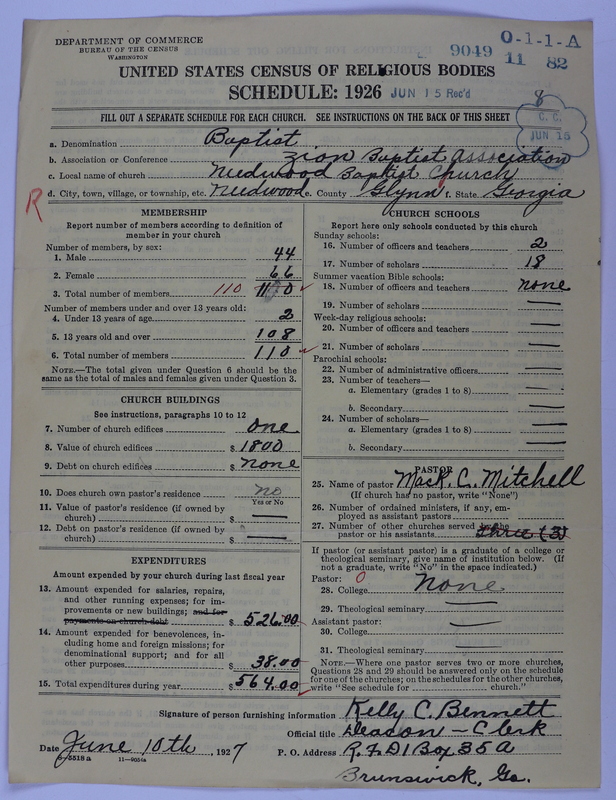 DEPARTMENT OF COMMERCE
BUREAU OF THE CENSUS
WASHINGTON
O-1-1-A
9049 11 82
UNITED STATES CENSUS OF RELIGIOUS BODIES
SCHEDULE: 1926 JUN 15 Rec'd
8
FILL OUT A SEPARATE SCHEDULE FOR EACH CHURCH. SEE INSTRUCTIONS ON THE BACK OF THIS SHEET
C. C.
JUN 15
a. Denomination Baptist
b. Association or Conference Zion Baptist Association
c. Local name of church Needwood Baptist Church
R
d. City, town, village, or township, etc. Needwood e. County Glynn f. State Georgia
MEMBERSHIP
Report number of members according to definition of
member in your church
Number of members, by sex:
1. Male 44
2. Female 66
3. Total number of members 110 110
Number of members under and over 13 years old:
4. Under 13 years of age 2
5. 13 years old and over 108
6. Total number of members 110
NOTE.—The total given under Question 6 should be the
same as the total of males and females given under Question 3.
CHURCH BUILDINGS
See instructions, paragraphs 10 to 12
7. Number of church edifices one
8. Value of church edifices $ 1800
9. Debt on church edifices $ none
10. Does church own pastor's residence no
Yes or No
11. Value of pastor's residence (if owned by
church) $ —
12. Debt on pastor's residence (if owned by
church) $ —
EXPENDITURES
Amount expended by your church during last fiscal year
13. Amount expended for salaries, repairs,
and other running expenses; for im-
provements or new buildings; and for
payments on church debt $ 526.00
14. Amount expended for benevolences, in-
cluding home and foreign missions; for
denominational support; and for all
other purposes $ 38.00
15. Total expenditures during year $ 564.00
CHURCH SCHOOLS
Report here only schools conducted by this church
Sunday schools:
16. Number of officers and teachers 2
17. Number of scholars 18
Summer vacation Bible schools:
18. Number of officers and teachers none
19. Number of scholars —
Week-day religious schools:
20. Number of officers and teachers —
21. Number of scholars —
Parochial schools:
22. Number of administrative officers —
23. Number of teachers—
a. Elementary (grades 1 to 8) —
b. Secondary —
24. Number of scholars—
a. Elementary (grades 1 to 8) —
b. Secondary —
PASTOR
25. Name of pastor Mack. C. Mitchell
(If church has no pastor, write "None")
26. Number of ordained ministers, if any, em-
ployed as assistant pastors —
27. Number of other churches served by the
pastor or his assistants three (3)
If pastor (or assistant pastor) is a graduate of a college or
theological seminary, give name of institution below. (If
not a graduate, write "No" in the space indicated.)
Pastor: 0
28. College None
29. Theological seminary —
Assistant pastor:
30. College —
31. Theological seminary —
NOTE.—Where one pastor serves two or more churches,
Questions 28 and 29 should be answered only on the schedule
for one of the churches; on the schedules for the other churches,
write "See schedule for church."
Signature of person furnishing information Kelly C. Bennett
Official title Deacon - Clerk
Date June 10th, 1927 P. O. Address R.F.D1 Box 35 A
8—5518 a 11—9054a
Brunswick, Ga.